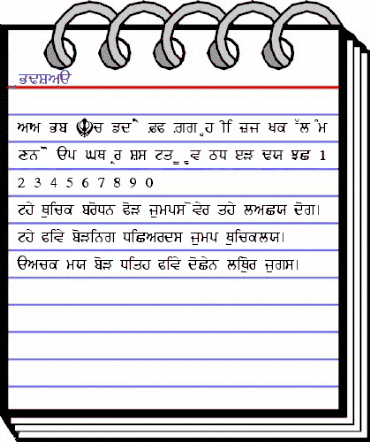 ਭਢਸ਼ਅੳ
ਅਅ ਭਬ ੴਚ ਡਦ ਫ਼ਫ ਗ਼ਗ ੍ਹ ੀਿ ਜ਼ਜ ਖਕ ੱਲ ੰਮ
ਣਨ ੳਪ ਘਥ ੍ਰਰ ਸ਼ਸ ਟਤ ੂੁ ਵ ਠਧ ੲੜ ਢਯ ਝਛ 1
2 3 4 5 6 7 8 9 0
ਟਹੇ ਥੁਚਿਕ ਬਰੋਧਨ ਫੋੜ ਜੁਮਪਸ ੋਵੇਰ ਤਹੇ ਲਅਛਯ ਦੋਗ।
ਟਹੇ ਫਵਿੇ ਬੋੜਨਿਗ ਧਛਿਅਰਦਸ ਜੁਮਪ ਥੁਚਿਕਲਯ।
ੳਅਚਕ ਮਯ ਬੋੜ ਧਤਿਹ ਫਵਿੇ ਦੋਛੇਨ ਲਥਿੁਰ ਜੁਗਸ।